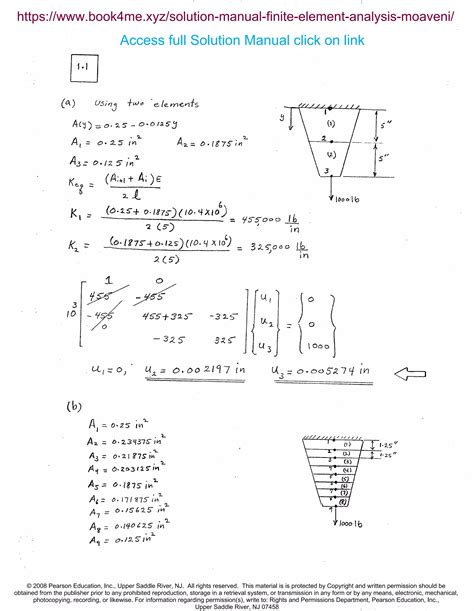 https://www.book4me.xyz/solution-manual-finite-element-analysis-moaveni/
Access full Solution Manual click on link
1.1
(a) Using two elements
A(y) = 0.25 - 0.0125y
A₁ = 0.25 in² A₂ = 0.1875 in²
A₃ = 0.125 in²
Keq = (Ai+1 + Ai)E / 2l
K₁ = (0.25 + 0.1875)(10.4×10⁶) / 2(5) = 455,000 lb/in
K₂ = (0.1875 + 0.125)(10.4×10⁶) / 2(5) = 325,000 lb/in
y
1
(1)
5"
2
(2)
5"
3
1000 lb
1 0
10³ [455 -455
-455 455+325 -325
0 -325 325] {u₁ u₂ u₃} = {0 0 1000}
u₁=0, u₂ = 0.002197 in u₃ = 0.005274 in
(b)
A₁ = 0.25 in²
A₂ = 0.234375 in²
A₃ = 0.21875 in²
A₄ = 0.203125 in²
A₅ = 0.1875 in²
A₆ = 0.171875 in²
A₇ = 0.15625 in²
A₈ = 0.140625 in²
A₉ = 0.125 in²
(1) 1.25"
(2) 1.25"
(3)
(4)
(5)
(6)
(7)
(8)
1000 lb
© 2008 Pearson Education, Inc., Upper Saddle River, NJ. All rights reserved. This material is protected by Copyright and written permission should be
obtained from the publisher prior to any prohibited reproduction, storage in a retrieval system, or transmission in any form or by any means, electronic, mechanical,
photocopying, recording, or likewise. For information regarding permission(s), write to: Rights and Permissions Department, Pearson Education, Inc.,
Upper Saddle River, NJ 07458